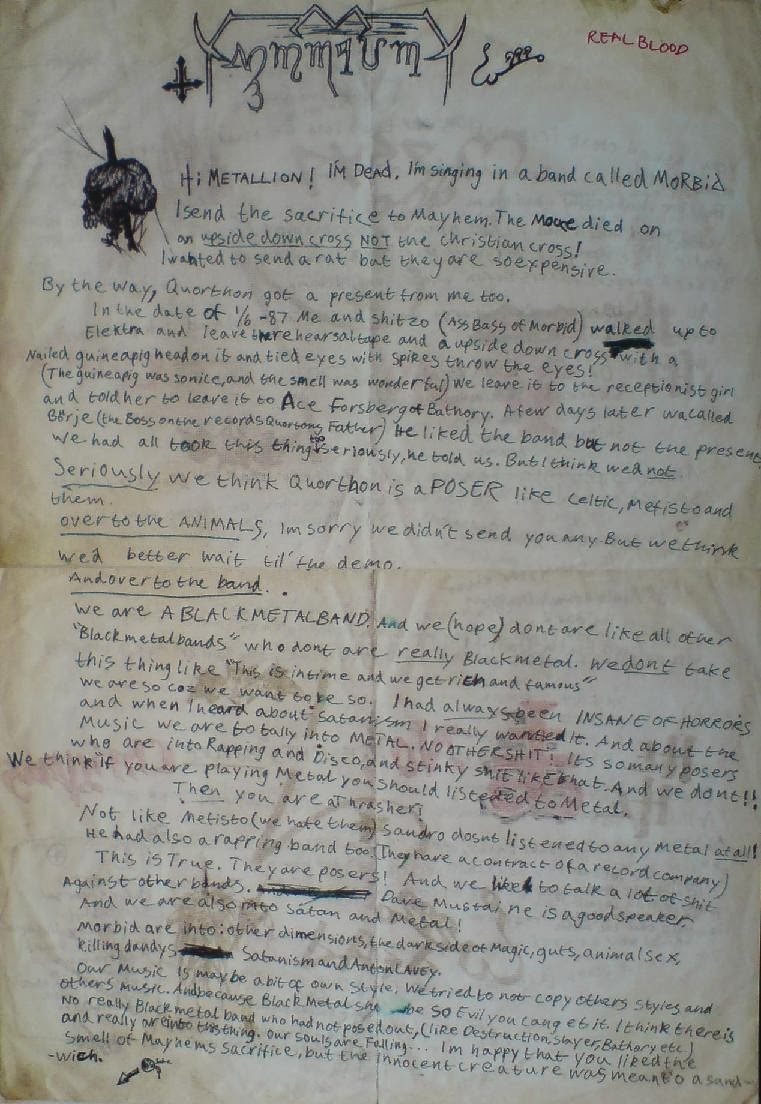 REAL BLOOD
Hi METALLION! I'm DEAD. I'm singing in a band called MORBID
I send the sacrifice to Mayhem. The Mouse died on
an upside down cross NOT the christian cross!
I wanted to send a rat but they are so expensive.
By the way, Quorthon got a present from me too.
In the date of 1/6 -87 Me and shitzo (Ass Bass of Morbid) walked up to
Elektra and leave there rehearsaltape and a upside down cross with a
Nailed guineapig head on it and tied eyes with spikes throw the eyes!
(The guineapig was so nice, and the smell was wonderful) We leave it to the receptionist girl
and told her to leave it to Ace Forsberg of Bathory. A few days later wa called
Börje (the Boss on the records Quortons Father) He liked the band but not the present,
We had all took this thing to seriously, he told us. But I think we'd not.
Seriously we think Quorthon is a POSER like Celtic, Mefisto and
them.
over to the ANIMALS, Im sorry we didn't send you any. But we think
we'd better wait til' the demo.
And over to the band.
We are A BLACK METAL BAND, And we (hope) dont are like all other
"Black metal bands" who dont are really Black metal. We dont take
this thing like "This is intime and we get rich and famous"
we are so coz we want to be so. I had always been INSANE OF HORRORS
and when I heard about satanism I really wanted it. And about the
Music we are totally into METAL. NO OTHER SHIT! Its so many posers
who are into Rapping and Disco, and stinky shit like that. And we dont!!
We think if you are playing Metal you should listened to Metal.
Then you are a Thrasher!
Not like Mefisto (we hate them) Sandro dosnt listened to any Metal at all!
He had also a rapping band too. (They have a contract of a record company)
This is True. They are posers! And we like to talk a lot of shit
Against other bands. Dave Mustaine is a good speaker.
And we are also into satan and Metal!
Morbid are into: other dimensions, the darkside of Magic, guts, animal sex,
killing dandys Satanism and Anton LaVey.
Our Music is maybe a bit of own style, we tried to not copy others styles and
others music. And because Black Metal be so Evil you can get it. I think there is
No really Black metal band who had not posed out, (like Destruction, Slayer, Bathory etc)
and really are into this thing. Our souls are Falling... Im happy that you liked the
smell of Mayhems sacrifice, but the innocent creature was meant to a sand-
-wich.